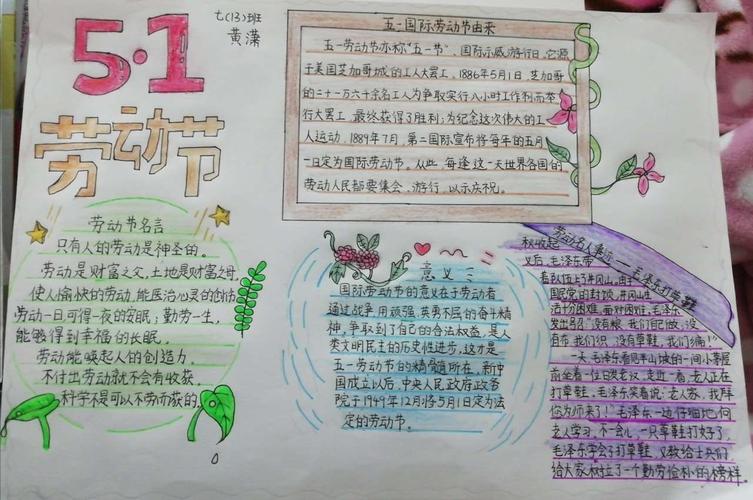 5·1
劳动节
七(13)班
黄潇
五一国际劳动节由来
五一劳动节亦称"五一节"、国际示威游行日,它源
于美国芝加哥城的工人大罢工,1886年5月1日,芝加哥
的二十一万六千余名工人为争取实行八小时工作制而举
行大罢工,最终获得了胜利;为纪念这次伟大的工
人运动,1889年7月,第二国际宣布将每年的五月
一日定为国际劳动节。从此,每逢这一天世界各国的
劳动人民都要集会、游行,以示庆祝。
劳动节名言
只有人的劳动是神圣的。
劳动是财富之父,土地是财富之母。
使人愉快的劳动,能医治心灵的创伤
劳动一日可得一夜的安眠;勤劳一生,
能够得到幸福的长眠。
劳动能唤起人的创造力。
不付出劳动就不会有收获。
科学不是可以不劳而获的。
意义
国际劳动节的意义在于劳动者
通过战争,用顽强,英勇不屈的奋斗精
神,争取到了自己的合法权益,是人
类文明民主的历史性进步,这才是
五一劳动节的精髓所在,新中
国成立以后,中央人民政府政务
院于1949年12月将5月1日定为法
定的劳动节。
劳动名人事示——毛泽东打草鞋
秋收起
义后,毛泽东带
着队伍上了井冈山,由于
国民党的封锁,井冈山生
活十分困难,面对困难,毛泽东
发出号召:"没有粮,我们自己
布,我们织,没有草鞋,我们编!"
一天,毛泽东看见半山坡的一间小茅屋
前坐着一位白发老汉,走近一看,老人正在
打草鞋,毛泽东笑着说:"老人家,我拜
你为师来了!"毛泽东一边仔细地向
老人学习,不一会儿,一只草鞋打好了,
毛泽东学会了打草鞋,又教给士兵们
给大家树立了一个勤劳俭朴的榜样。